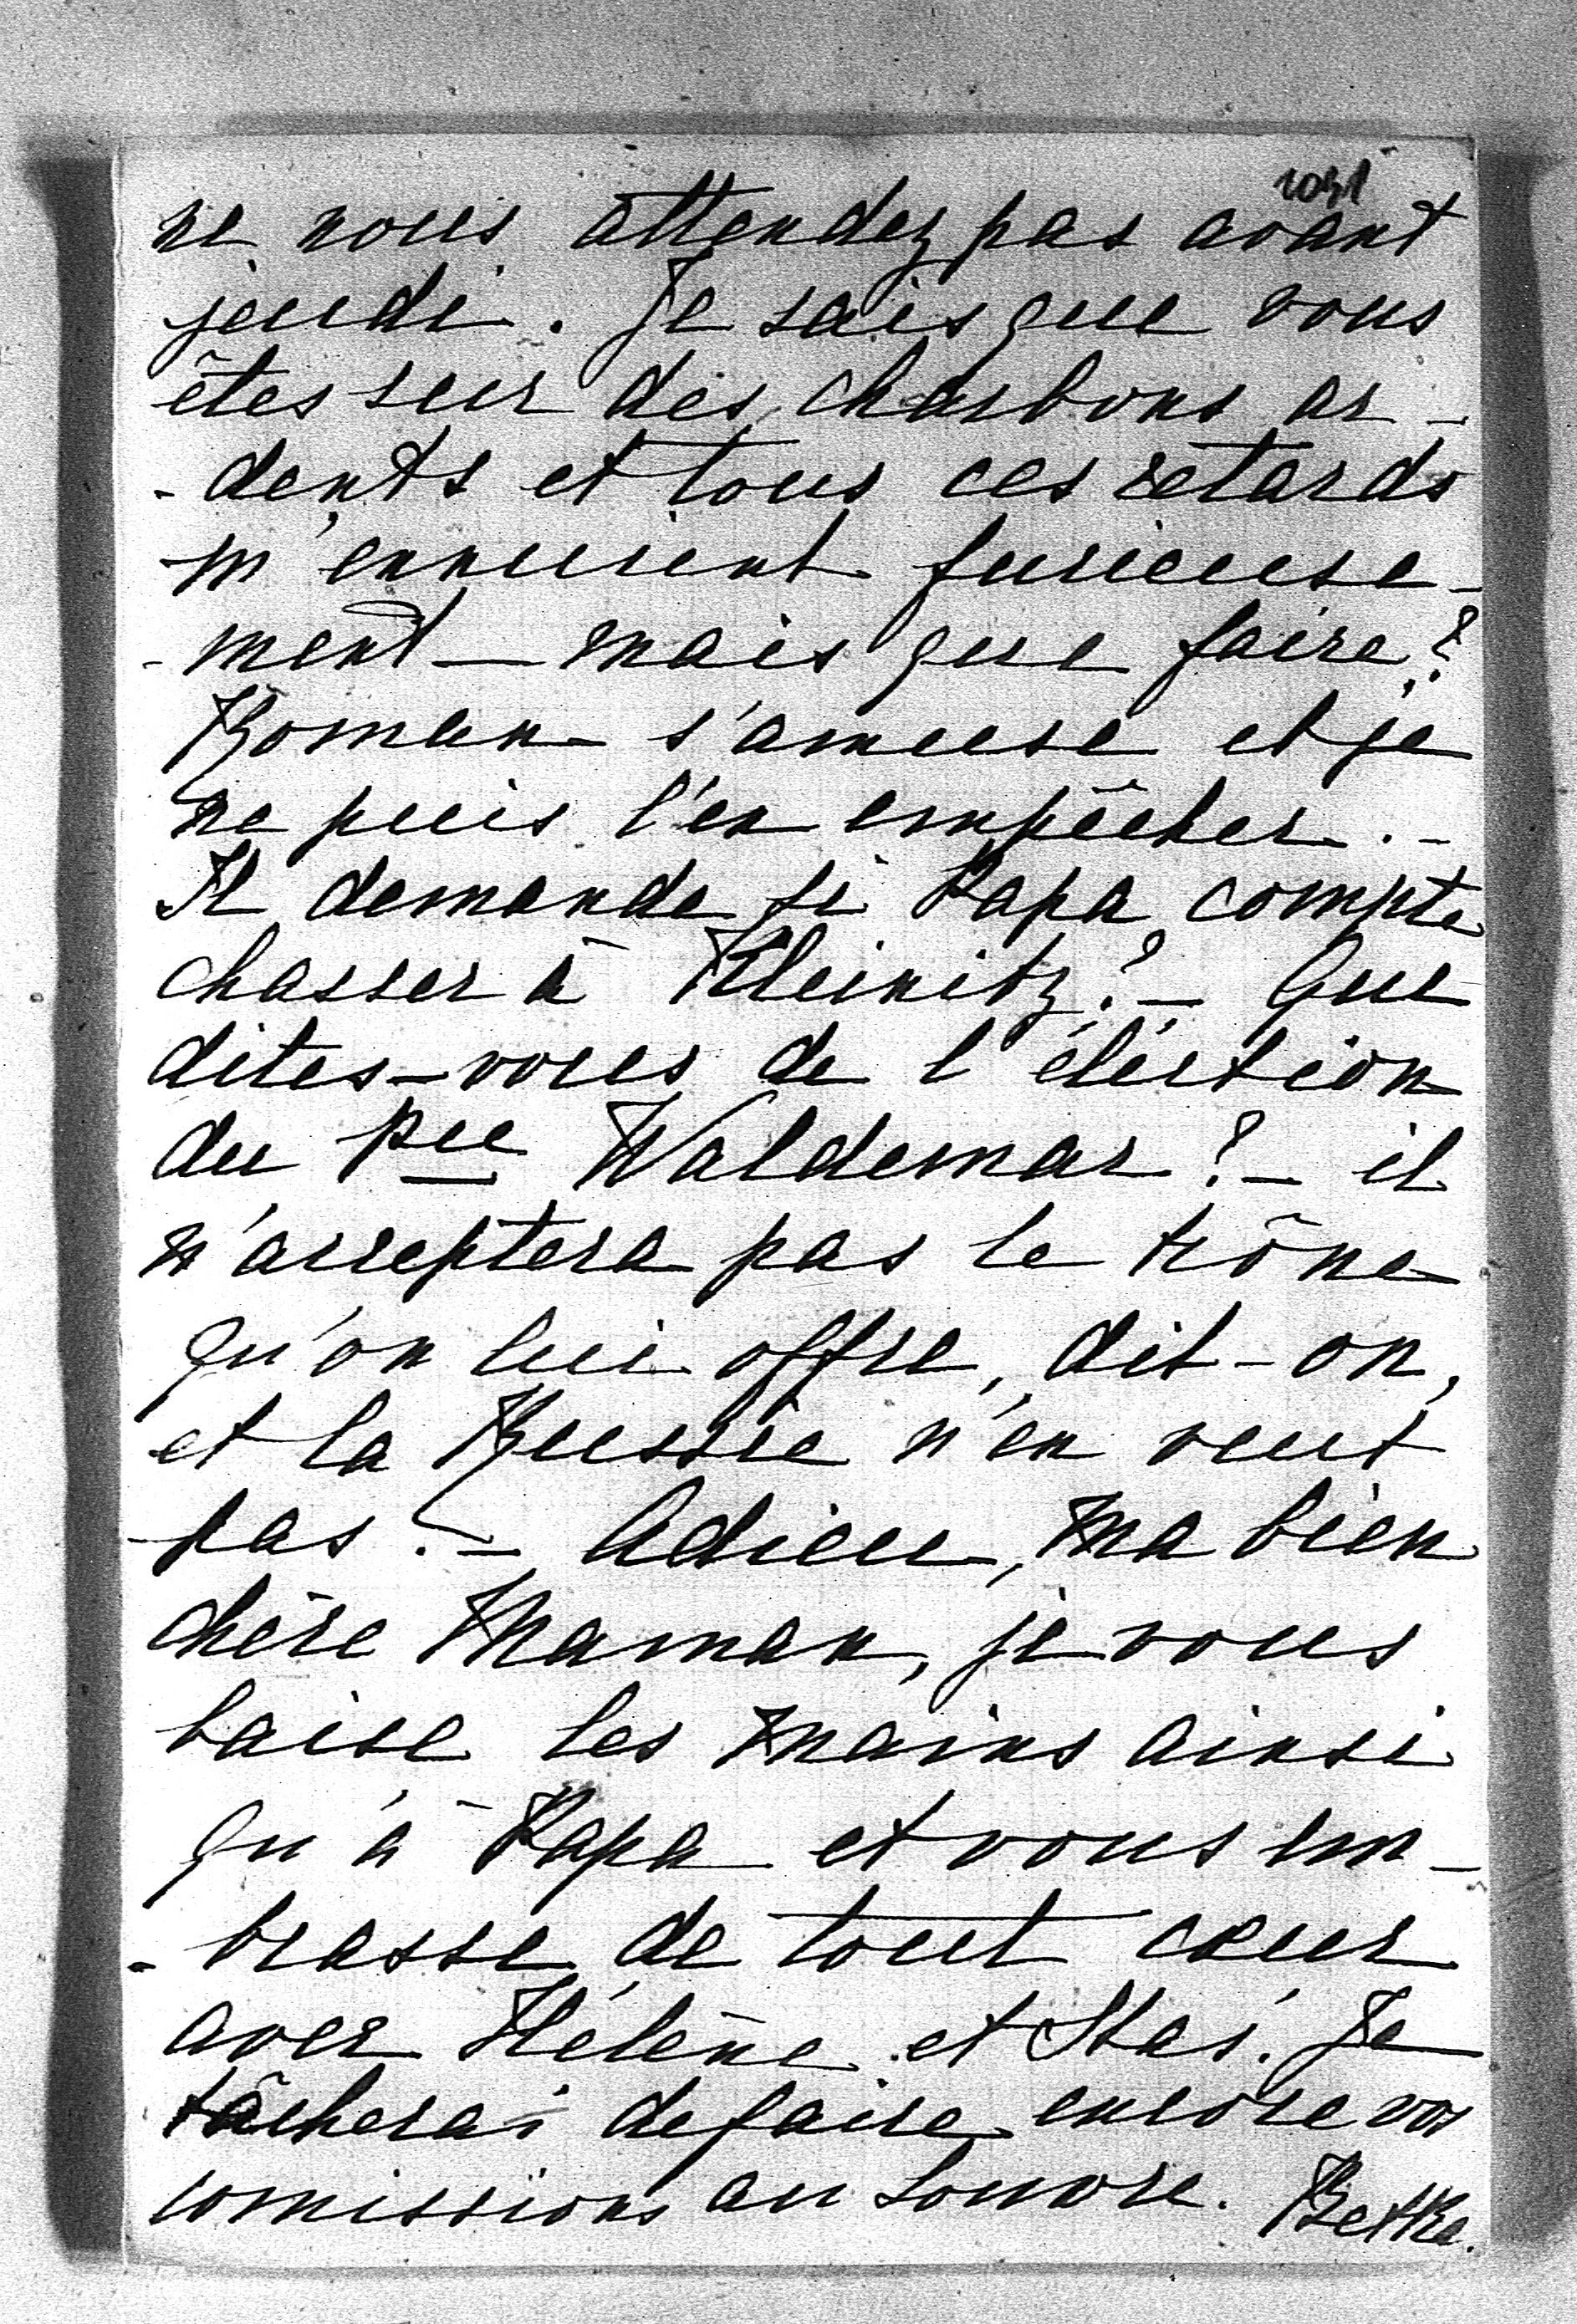 1031
ne nous attendez pas avant
jeudi. Je sais que vous
êtes sur des charbons ar-
-dents et tous ces retards
m'ennuient furieuse-
-ment — mais que faire?
Roman s'amuse et je
ne puis l'en empêcher. -
Il demande si Papa compte
chasser à Kleinitz? - Que
dites-vous de l'élection
du Pce Waldemar? - il
n'acceptera pas le trône
qu'on lui offre, dit-on,
et la Russie n'en veut
pas. - Adieu, ma bien
chère Maman, je vous
baise les mains ainsi
qu'à Papa et vous em-
-brasse de tout cœur
avec Hélène et Stas. Je
tâcherai de faire encore vos
comissions au Louvre. Betka.